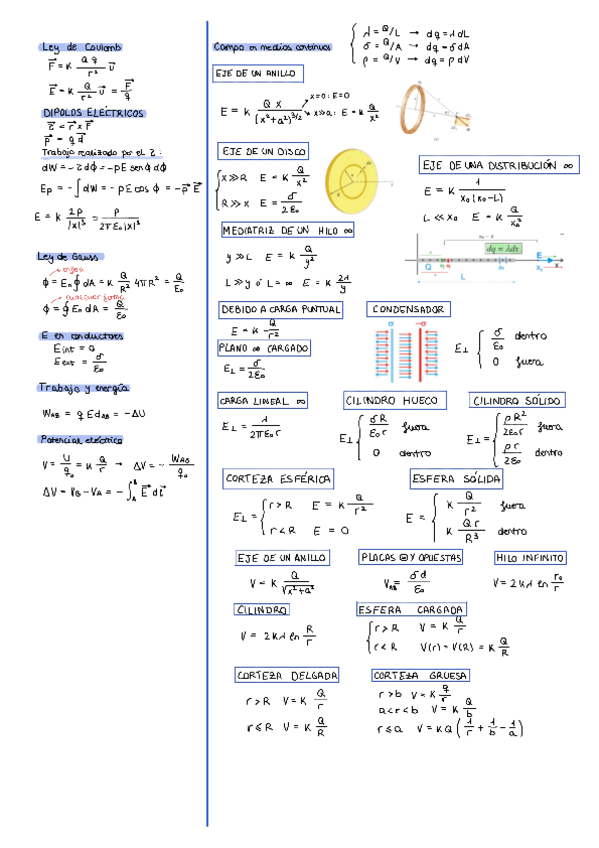 Ley de Coulomb
F⃗ = K Qq/r² u⃗
E⃗ = K Q/r² u⃗ = F⃗/q
DIPOLOS ELÉCTRICOS
τ⃗ = r⃗ × F⃗
p⃗ = q d⃗
Trabajo realizado por el τ:
dW = -τdϕ = -pE senϕ dϕ
Ep = -∫dW = -pE cos ϕ = -p⃗ E⃗
E = K 2p/|x|³ = p/2πε₀|x|³
Ley de Gauss
esfera
ϕ = Eₙ∮dA = K Q/R² 4πR² = Q/ε₀
cualquier forma
ϕ = ∮Eₙ dA = Q/ε₀
E en conductores
E int = 0
E ext = σ/ε₀
Trabajo y energía
W_AB = q E d_AB = -ΔU
Potencial eléctrico
V = U/q₀ = K Q/r → ΔV = - W_AB/q₀
ΔV = V_B - V_A = -∫_A^B E⃗ dl⃗
Campo en medios continuos
λ = Q/L → dq = λdL
σ = Q/A → dq = σdA
ρ = Q/V → dq = ρdV
EJE DE UN ANILLO
E = K Qx/(x²+a²)^3/2
x=0: E=0
x≫a: E = K Q/x²
EJE DE UN DISCO
x≫R E = K Q/x²
R≫x E = σ/2ε₀
EJE DE UNA DISTRIBUCIÓN ∞
E = K 1/x₀(x₀-L)
L ≪ x₀ E = K Q/x₀²
MEDIATRIZ DE UN HILO ∞
y≫L E = K Q/y²
L≫y ó L = ∞ E = K 2λ/y
x₀ - x
dq = λdx
Q
E
x₀
x
L
DEBIDO A CARGA PUNTUAL
E = K Q/r²
PLANO ∞ CARGADO
E⊥ = σ/2ε₀
CONDENSADOR
-σ +σ
E⊥ { σ/ε₀ dentro
0 fuera
CARGA LINEAL ∞
E⊥ = λ/2πε₀r
CILINDRO HUECO
E⊥ { σR/ε₀r fuera
0 dentro
CILINDRO SÓLIDO
E⊥ = { ρR²/2ε₀r fuera
ρr/2ε₀ dentro
CORTEZA ESFÉRICA
E⊥ = { r>R E = K Q/r²
r<R E = 0
ESFERA SÓLIDA
E = { K Q/r² fuera
K Qr/R³ dentro
EJE DE UN ANILLO
V = K Q/√x²+a²
PLACAS ∞ Y OPUESTAS
V_AB = σd/ε₀
HILO INFINITO
V = 2Kλ ln r₀/r
CILINDRO
V = 2Kλ ln R/r
ESFERA CARGADA
r>R V = K Q/r
r<R V(r) = V(R) = K Q/R
CORTEZA DELGADA
r>R V = K Q/r
r≤R V = K Q/R
CORTEZA GRUESA
r>b V = K q/r
a<r<b V = K Q/b
r≤a V = KQ (1/r + 1/b - 1/a)